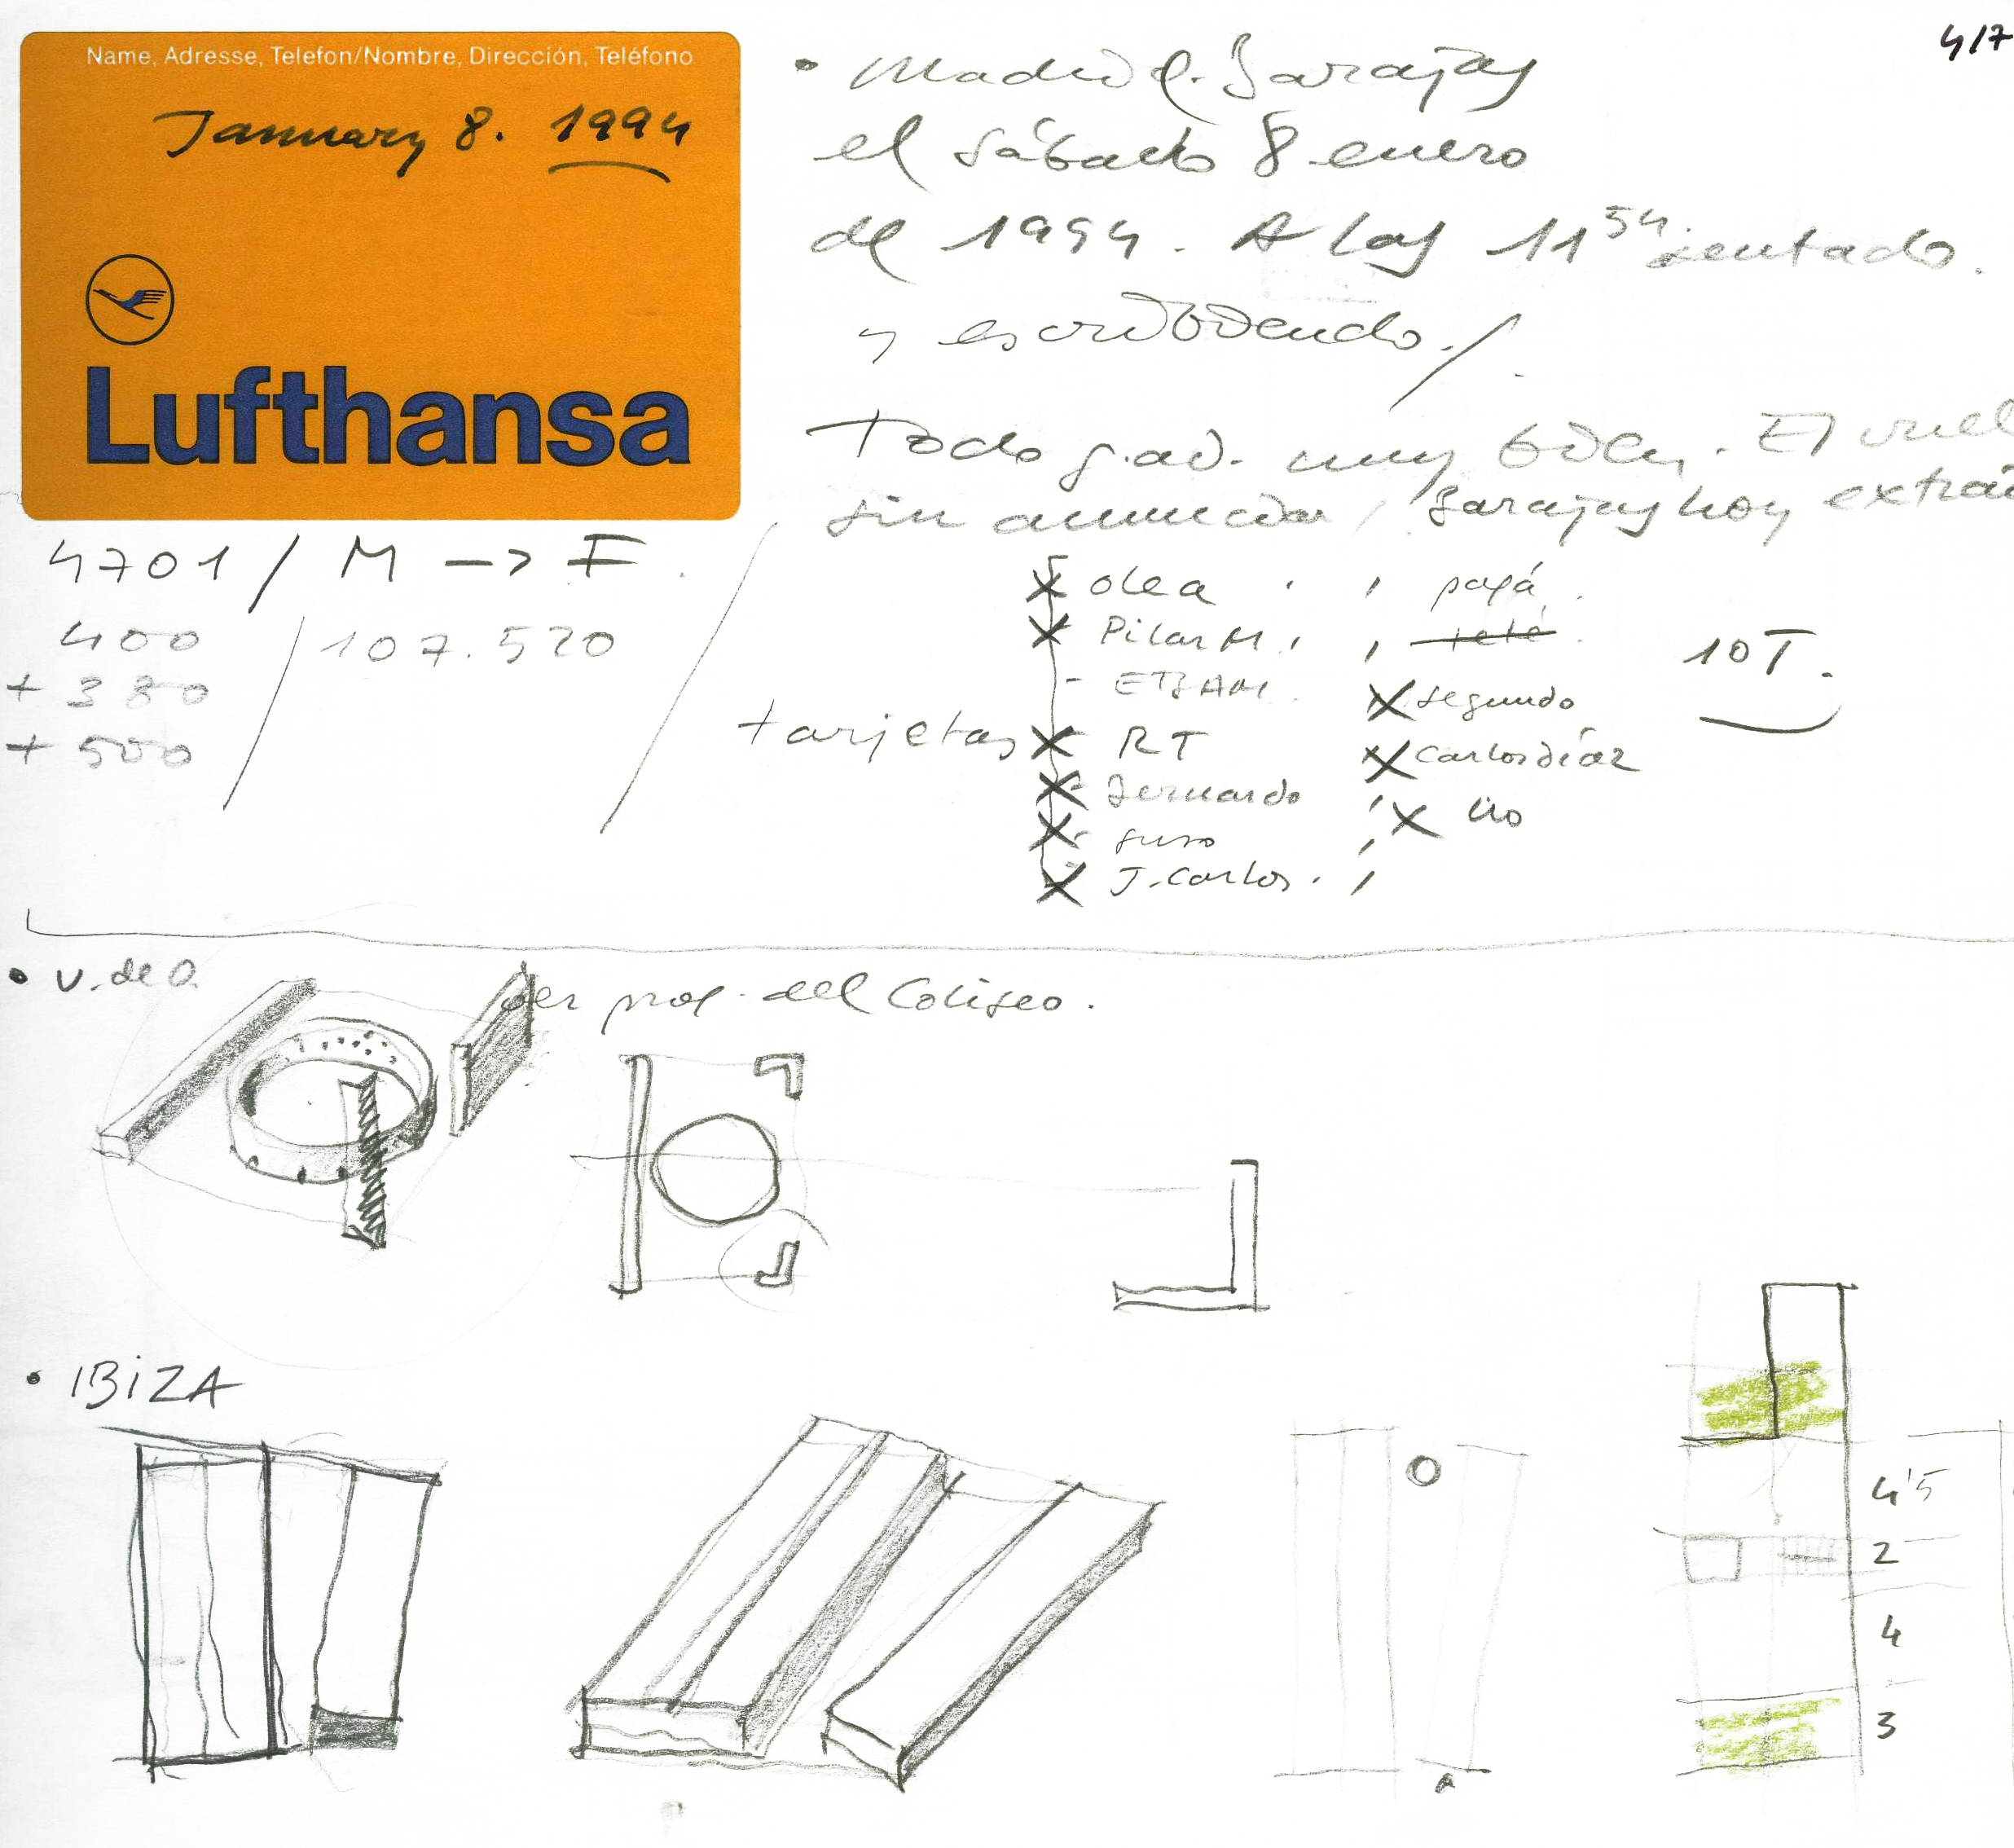 Name, Adresse, Telefon/Nombre, Dirección, Teléfono
January 8. 1994
Lufthansa
4/7
• Madrid. Barajas
el sábado 8 enero
de 1994. A las 11 54. sentado.
y escribiendo./
Todo g.a.D. muy bien. El vuel
sin anunciar, Barajas hoy extrañ
4701 / M -> F.
400 / 107.520
+ 380
+ 500
tarjetas
olea
Pilar M.
ETSAM.
RT
Bernardo
suso
J. Carlos.
papá.
teté.
segundo
Carlos díaz
10T.
• V. de Q
ver prop. del Coliseo.
• IBIZA
4'5
2
4
3